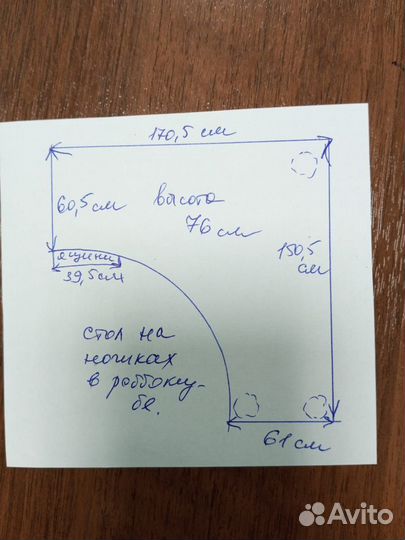 170,5 см
60,5 см
высота
76 см
150,5
см
ящики
39,5 см
стол на
ножках
61 см
Avito